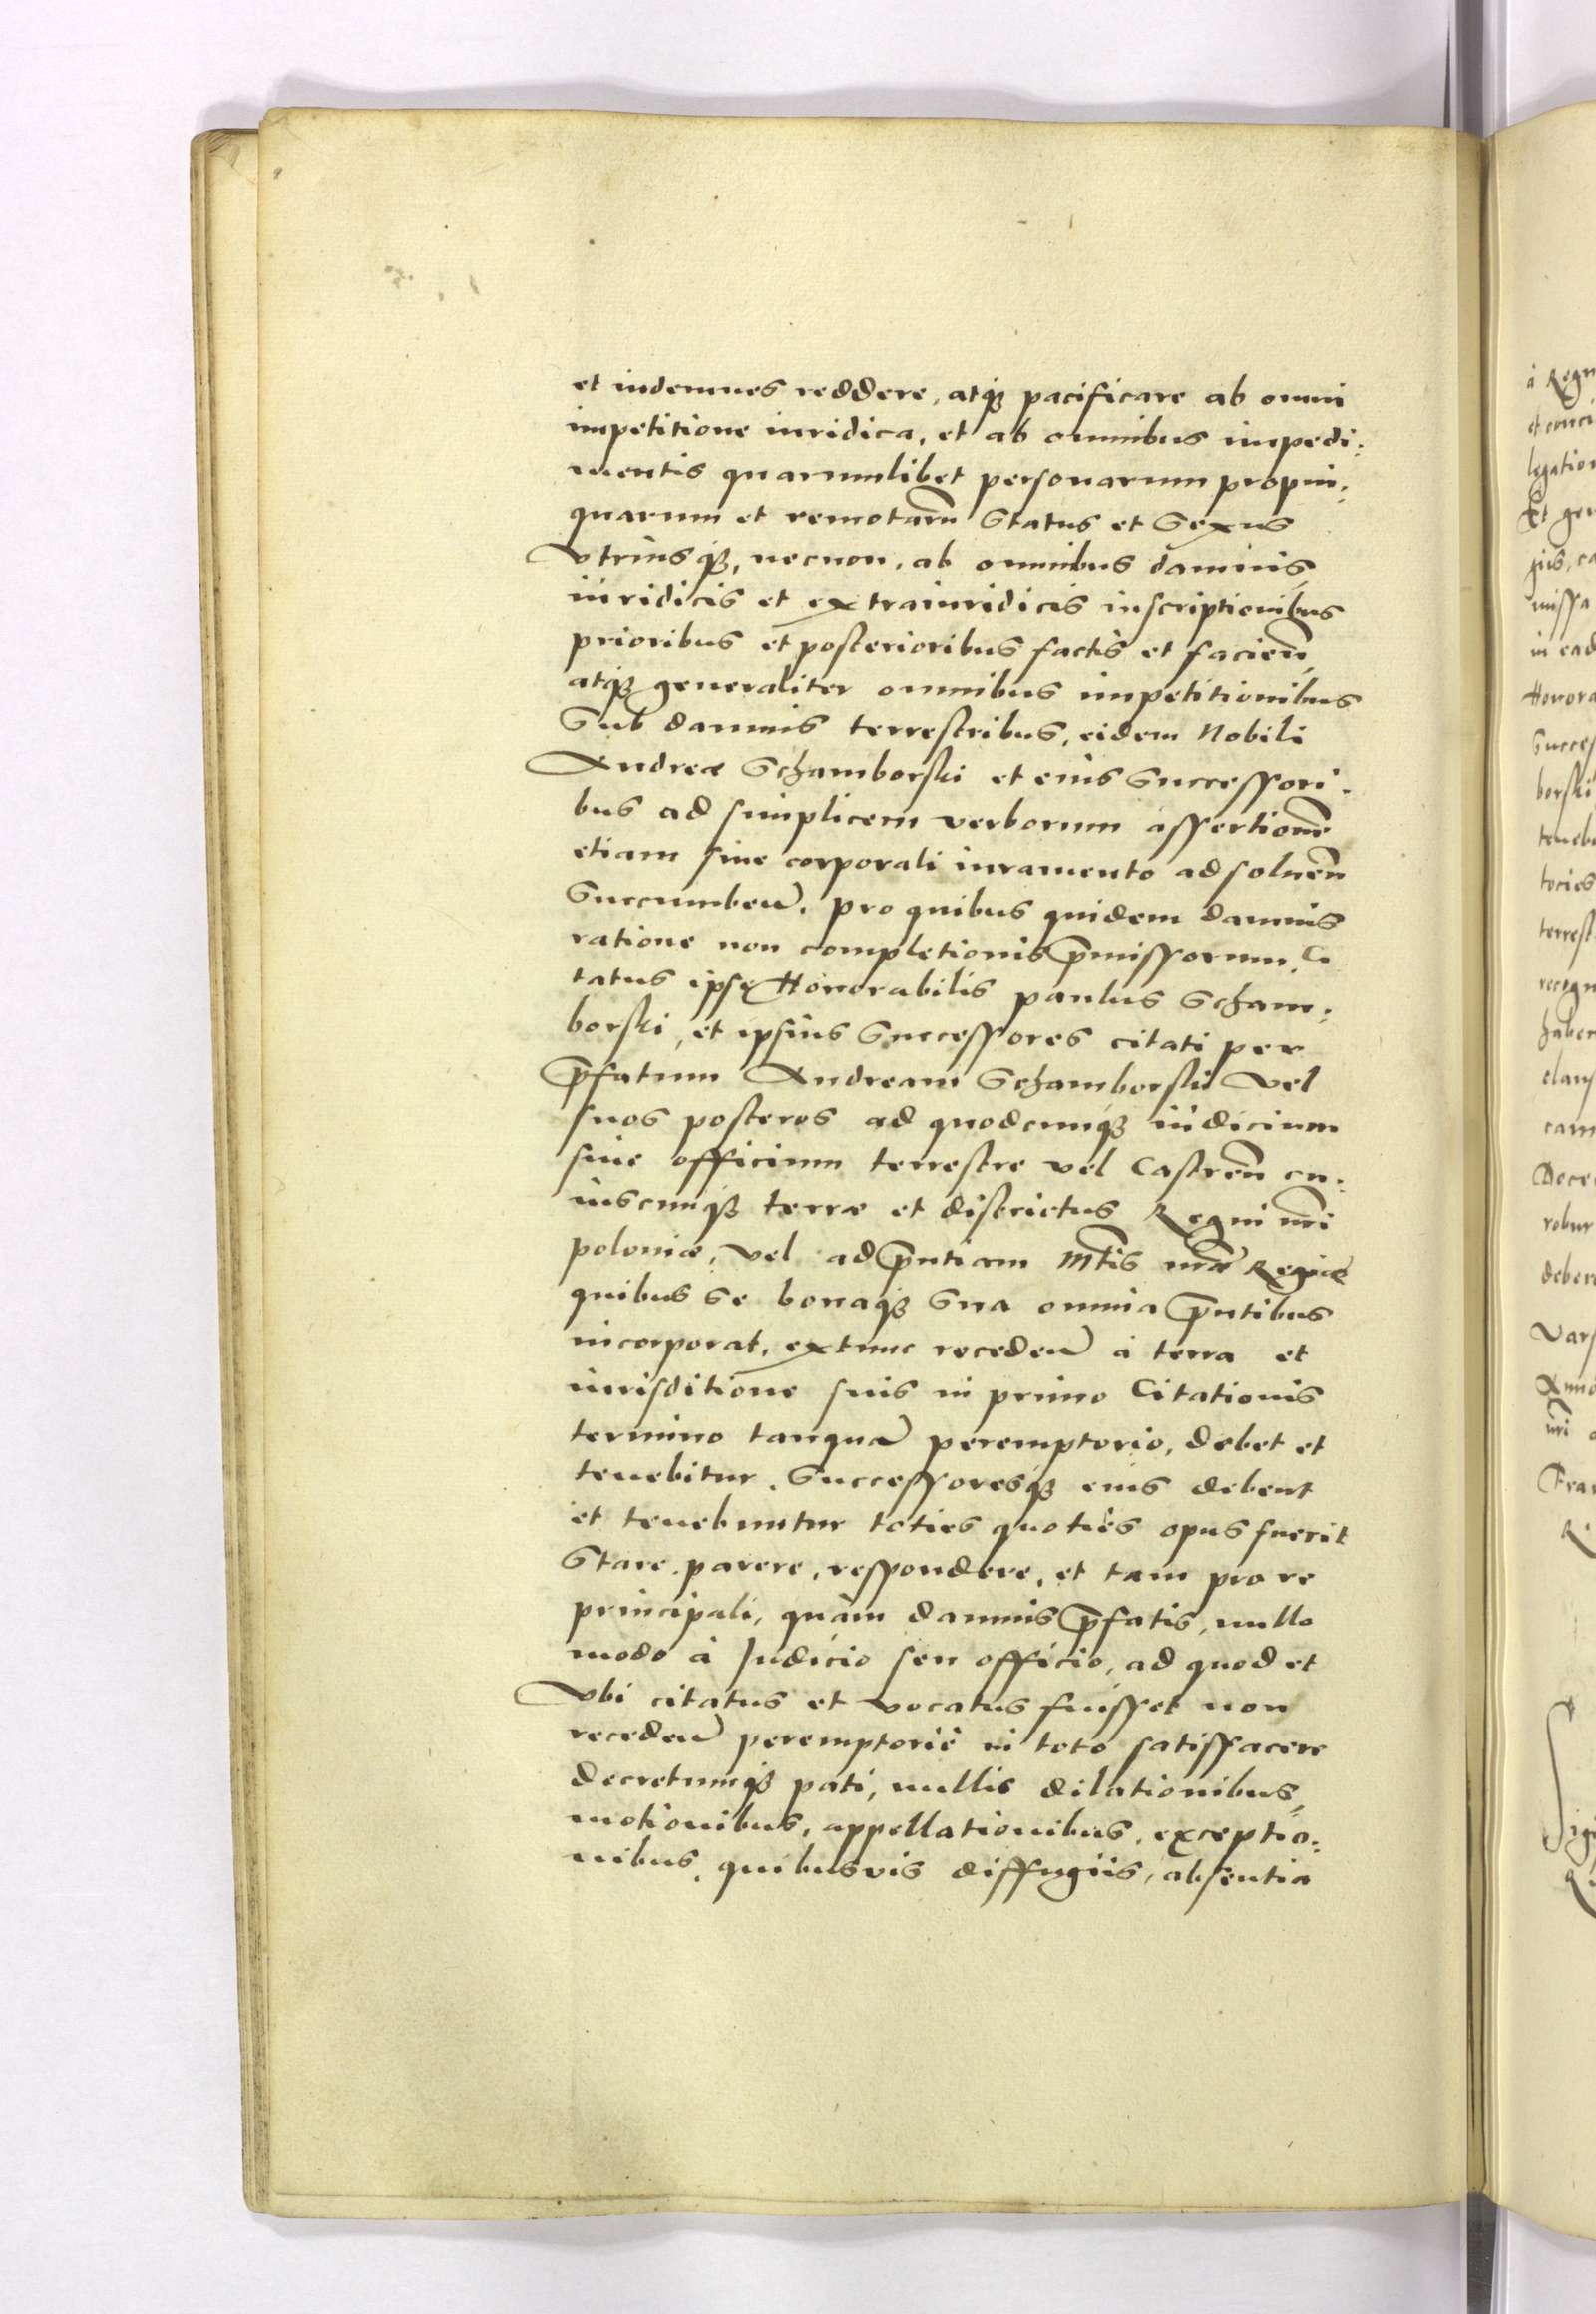 et indemnes reddere, atq₃ pacificare ab omni
impetitione iuridica, et ab omnibus impedi:
mentis quarumlibet personarum propin:
quarum et remotarũ Status et Sexus
Vtriusq₃, necnon, ab omnibus damnis
iuridicis et extraiuridicis inscriptionibus
prioribus et posterioribus factis et facieñ
atq₃ generaliter omnibus impetitionibus
Sub damnis terrestribus, eidem Nobili
Andreæ Schamborski et eius Successori:
bus ad simplicem verborum assertionẽ
etiam sine corporali iuramento ad solueñ
Succumbeñ. pro quibus quidem damnis
ratione non completionis p̃missorum, Ci
tatus ipse Honorabilis paulus Scham:
borski, et ipsius Successores citati per
p̃fatum Andream Schamborski Vel
suos posteros ad quodcumq₃ iudicium
siue officium terrestre vel Castreñ cu:
iuscumq₃ terræ et districtus Regni nr̃i
poloniæ, Vel ad p̃ntiam Mt̃is nr̃æ Regiæ
quibus se bonaq₃ Sua omnia p̃ntibus
incorporat, extunc recedeñ à terra et
iurisditione suis in primo Citationis
termino tanquã peremptorio, debet et
tenebitur. Successoresq₃ eius debent
et tenebuntur toties quoties opus fuerit
Stare. parere, respondere, et tam pro re
principali, quàm damnis p̃fatis, nullo
modo à Judicio seu officio, ad quod et
Vbi citatus et vocatus fuisset non
recedeñ peremptoriè in toto satisfacere
decretumq₃ pati, nullis dilationibus,
motionibus, appellationibus, exceptio:
nibus, quibusvis diffugiis, absentia
à Regn
et
legation
Et gen
missa
in ead
Honora
Succes
borski
teneb
tocies
terrest
recogn
haber
claus
cam
Dece
robur
deber
Vars
Anno
nr̃i